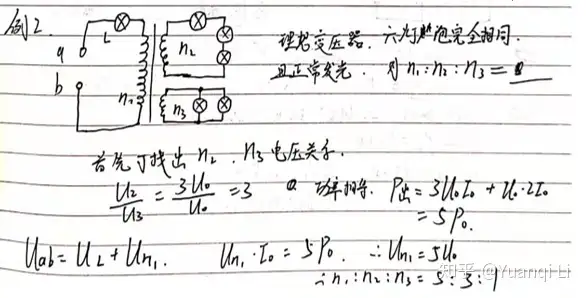 例2.
a
b
L
n₁
n₂
n₃
理想变压器. 六个灯泡完全相同.
且正常发光. 则 n₁:n₂:n₃ =
首先可找出 n₂. n₃ 电压关系.
U₂/U₃ = 3U₀/U₀ = 3 功率相等. P出 = 3U₀I₀ + U₀·2I₀
= 5P₀.
Uab = U_L + Un₁. Un₁·I₀ = 5P₀. ∴Un₁ = 5U₀
∴n₁:n₂:n₃ = 5:3:1
知乎 @Yuanqi Li